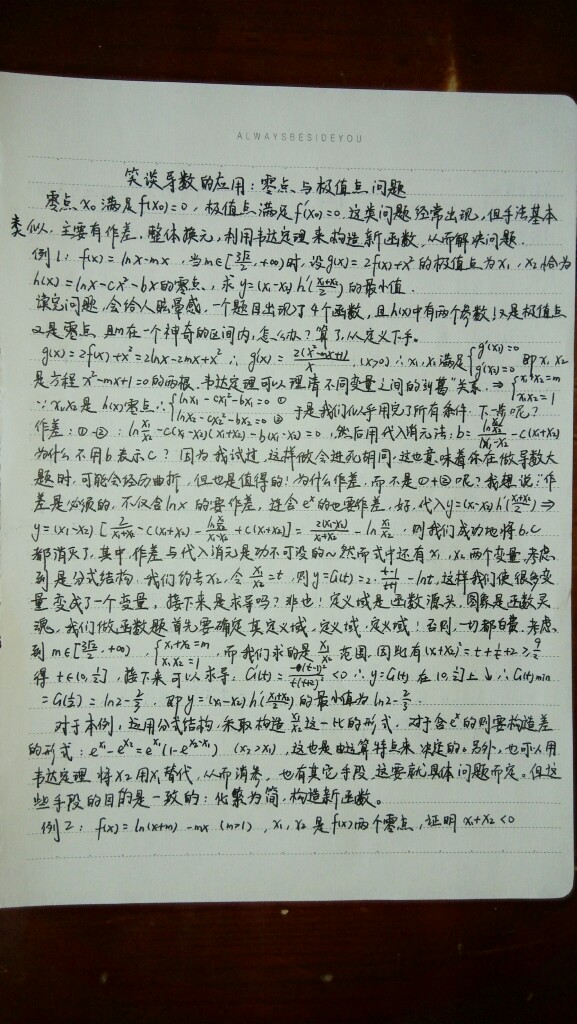 ALWAYSBESIDEYOU
笑谈导数的应用:零点与极值点问题
零点x₀满足f(x₀)=0,极值点满足f'(x₀)=0.这类问题经常出现,但手法基本
类似.主要有作差.整体换元,利用韦达定理来构造新函数,从而解决问题.
例1:f(x)=lnx-mx,当m∈[3√2/2,+∞)时,设g(x)=2f(x)+x²的极值点为x₁,x₂恰为
h(x)=lnx-cx²-bx的零点,求y=(x₁-x₂)h'((x₁+x₂)/2)的最小值.
读完问题,会给人眩晕感,一个题目出现了4个函数,且h(x)中有两个参数!又是极值点
又是零点,且m在一个神奇的区间内,怎么办?算了,从定义下手.
g(x)=2f(x)+x²=2lnx-2mx+x² ∴g'(x)=2(x²-mx+1)/x,(x>0)∴x₁,x₂满足{g'(x₁)=0 g'(x₂)=0 即x₁,x₂
是方程x²-mx+1=0的两根.韦达定理可以理清不同变量之间的纠葛"关系.⇒{x₁+x₂=m x₁x₂=1
∵x₁,x₂是h(x)零点∴{lnx₁-cx₁²-bx₁=0 ① lnx₂-cx₂²-bx₂=0 ② 于是我们似乎用完了所有条件.下一步呢?
作差:①-②:ln x₁/x₂-c(x₁-x₂)(x₁+x₂)-b(x₁-x₂)=0,然后用代入消元法:b=(ln x₁/x₂)/(x₁-x₂)-c(x₁+x₂)
为什么不用b表示c?因为我试过,这样做会进死胡同.这也意味着你在做导数大
题时,可能会经历曲折,但也是值得的!为什么作差,而不是①+②呢?我想说:作
差是必须的,不仅含lnx的要作差,连含eˣ的也要作差,好,代入y=(x₁-x₂)h'((x₁+x₂)/2)⇒
y=(x₁-x₂)[2/(x₁+x₂)-c(x₁+x₂)-(ln x₁/x₂)/(x₁-x₂)+c(x₁+x₂)]=2(x₁-x₂)/(x₁+x₂)-ln x₁/x₂.则我们成功地将b,c
都消灭了,其中,作差与代入消元是功不可没的~然而式中还有x₁,x₂两个变量,考虑
到是分式结构,我们约去x₂,令x₁/x₂=t,则y=G(t)=2·(t-1)/(t+1)-lnt,这样我们使很多变
量变成了一个变量,接下来是求导吗?非也!定义域是函数源头,图象是函数灵
魂,我们做函数题首先要确定其定义域,定义域,定义域!否则,一切都白费.考虑
到m∈[3√2/2,+∞),{x₁+x₂=m x₁x₂=1,而我们求的是x₁/x₂范围,因此有(x₁+x₂)²=t+1/t+2≥9/2
得t∈(0,1/2],接下来可以求导:G'(t)=-(t-1)²/t(t+2)²<0 ∴y=G(t)在(0,1/2]上↘∴G(t)min
=G(1/2)=ln2-2/3.即y=(x₁-x₂)h'((x₁+x₂)/2)的最小值为ln2-2/3.
对于本例,运用分式结构,采取构造x₁/x₂这一比的形式.对于含eˣ的则要构造差
的形式:e^x₁-e^x₂=e^x₁(1-e^(x₂-x₁)) (x₂>x₁),这也是由运算特点来决定的。另外,也可以用
韦达定理将x₂用x₁替代,从而消参,也有其它手段,这要就具体问题而定。但这
些手段的目的是一致的:化繁为简,构造新函数。
例2:f(x)=ln(x+m)-mx (m>1),x₁,x₂是f(x)两个零点,证明x₁+x₂<0